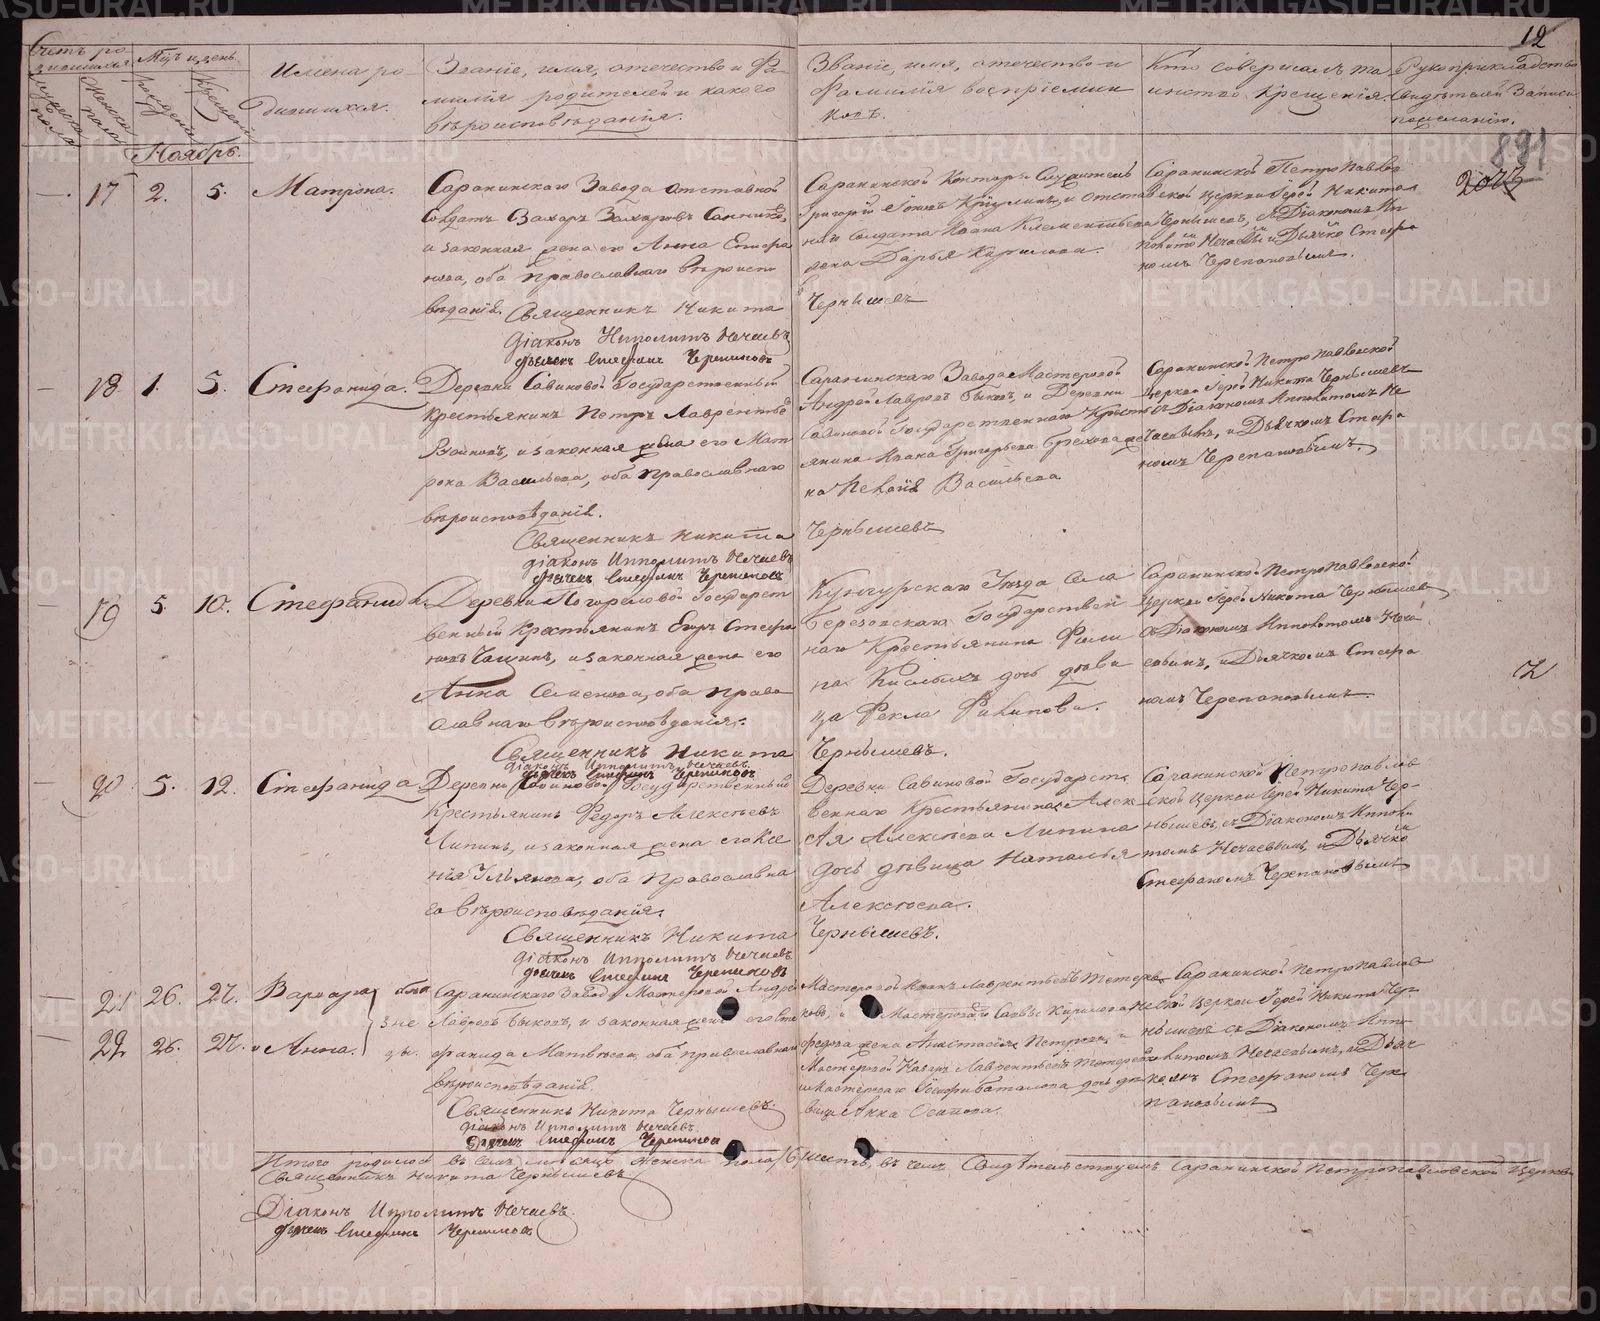 12
Счетъ ро-
дившихся
Мужеска
пола
Женска
пола
Мѣц. и день
рожденія
Крещенія
Имена ро-
дившихся.
Званіе, имя, отечество и Фа-
милія родителей и какого
вѣроисповѣданія.
Званіе, имя, отечество и
Фамилія воспріемни
ковъ.
Кто совершалъ та
инство Крещенія.
Рукоприкладство
свидѣтелей записи
по желанію.
Ноябрь.
891
17 2. 5. Матрона.
Саранинскаго Завода отставной
Солдатъ Захаръ Захаровъ
и законная жена его Анна
оба Православнаго вѣроиспо
вѣданія. Священникъ Никита
Чернышевъ
Діаконъ Ипполитъ Нечаевъ
Дьячекъ Стефанъ Черепановъ
Саранинской Конторы Служитель
Григорій
Солдата Ивана
жена Дарья Кирилова.
Саранинской Петропавлов
ской церкви Іерей Никита
Чернышевъ, съ Діакономъ Ип
политомъ Нечаевымъ и Дьячкомъ Стефа
номъ Черепановымъ.
18 1. 5. Стефанида.
Деревни Савиновой Государственный
крестьянинъ Петръ Лаврентьевъ
и законная жена его Мат
рона Васильева, оба православнаго
вѣроисповѣданія.
Священникъ Никита Чернышевъ
Діаконъ Ипполитъ Нечаевъ
Дьячекъ Стефанъ Черепановъ
Саранинскаго Завода Мастеровой
Андрей Лавровъ Быковъ, и Деревни
Савиновой Государственнаго Кресть
янина Ивана Григорьева
Васильева
Саранинской Петропавловской
Церкви Іерей Никита Чернышевъ
съ Діакономъ Ипполитомъ Не
чаевымъ, и Дьячкомъ Стефа
номъ Черепановымъ.
19 5. 10. Стефанида.
Деревни Погореловой Государст
венный Крестьянинъ Егоръ Стефа
новъ и законная жена его
Анна Семенова, оба право
славнаго вѣроисповѣданія.
Священникъ Никита Чернышевъ.
Діаконъ Ипполитъ Нечаевъ.
Дьячекъ Стефанъ Черепановъ
Кунгурскаго Уѣзда Села
Березовскаго Государствен
наго Крестьянина Фили
па Кислыхъ дочь дѣви
ца Фекла Филипова.
Саранинской Петропавловской
Церкви Іерей Никита Чернышевъ
съ Діакономъ Ипполитомъ Неча
евымъ, и Дьячкомъ Стефа
номъ Черепановымъ
20 5. 12. Стефанида
Деревни Савиновой Государственный
Крестьянинъ Федоръ Алексѣевъ
Липинъ, и законная жена его Ксе
нія Ульянова, оба Православна
го вѣроисповѣданія.
Священникъ Никита Чернышевъ.
Діаконъ Ипполитъ Нечаевъ.
Дьячекъ Стефанъ Черепановъ
Деревни Савиновой Государст
веннаго Крестьянина Алек
сѣя Алексѣева Липина
дочь дѣвица Наталья
Алексѣева.
Саранинской Петропавлов
ской Церкви Іерей Никита Чер-
нышевъ, съ Діакономъ Иппoли
томъ Нечаевымъ, и Дьячко
Стефаномъ Черепановымъ
21 26. 27. Варвара
22 26. 27. и Анна.
близ
не
цы.
Саранинскаго Завода Мастеровой Андрей
Лавровъ Быковъ, и законная жена его Сте
фанида Матвѣева, оба православнаго
вѣроисповѣданія.
Священникъ Никита Чернышевъ.
Діаконъ Ипполитъ Нечаевъ.
Дьячекъ Стефанъ Черепановъ
Мастеровой Иванъ Лаврентьевъ
и Мастероваго Саввы Кирилова
жена Анастасія Петрова, и
Мастеровой Лаврентьевъ
и Мастероваго дочь дѣ
вица Анна Осипова.
Саранинской Петропавлов
ской Церкви Іерей Никита Чер-
нышевъ съ Діакономъ Иппо
литомъ Нечаевымъ, и Дьяч
комъ Стефаномъ Чере
пановымъ
Итого родилось въ семъ мѣсяцѣ женска пола /6/ шесть, въ чемъ Свидѣтельствуемъ Саранинской Петропавловской Церкви
Священникъ Никита Чернышевъ
Діаконъ Ипполитъ Нечаевъ.
Дьячекъ Стефанъ Черепановъ
METRIKI.GASO-URAL.RU